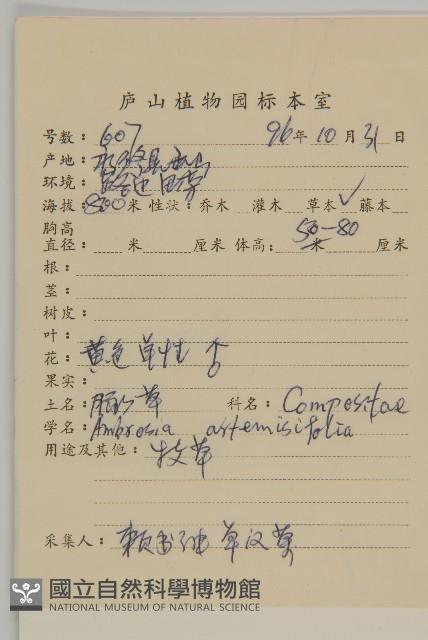 庐山植物园标本室
号数: 607 96年10月31日
产地:
环境: 路边
海拔: 800米 性状: 乔木 灌木 草本✓ 藤本
胸高
直径: 米 厘米 体高: 50-80 米 厘米
根:
茎:
树皮:
叶:
花: 黄色 单性
果实:
土名: 草 科名: Compositae
学名: Ambrosia artemisifolia
用途及其他: 草
采集人: 赖书绅
國立自然科學博物館
NATIONAL MUSEUM OF NATURAL SCIENCE